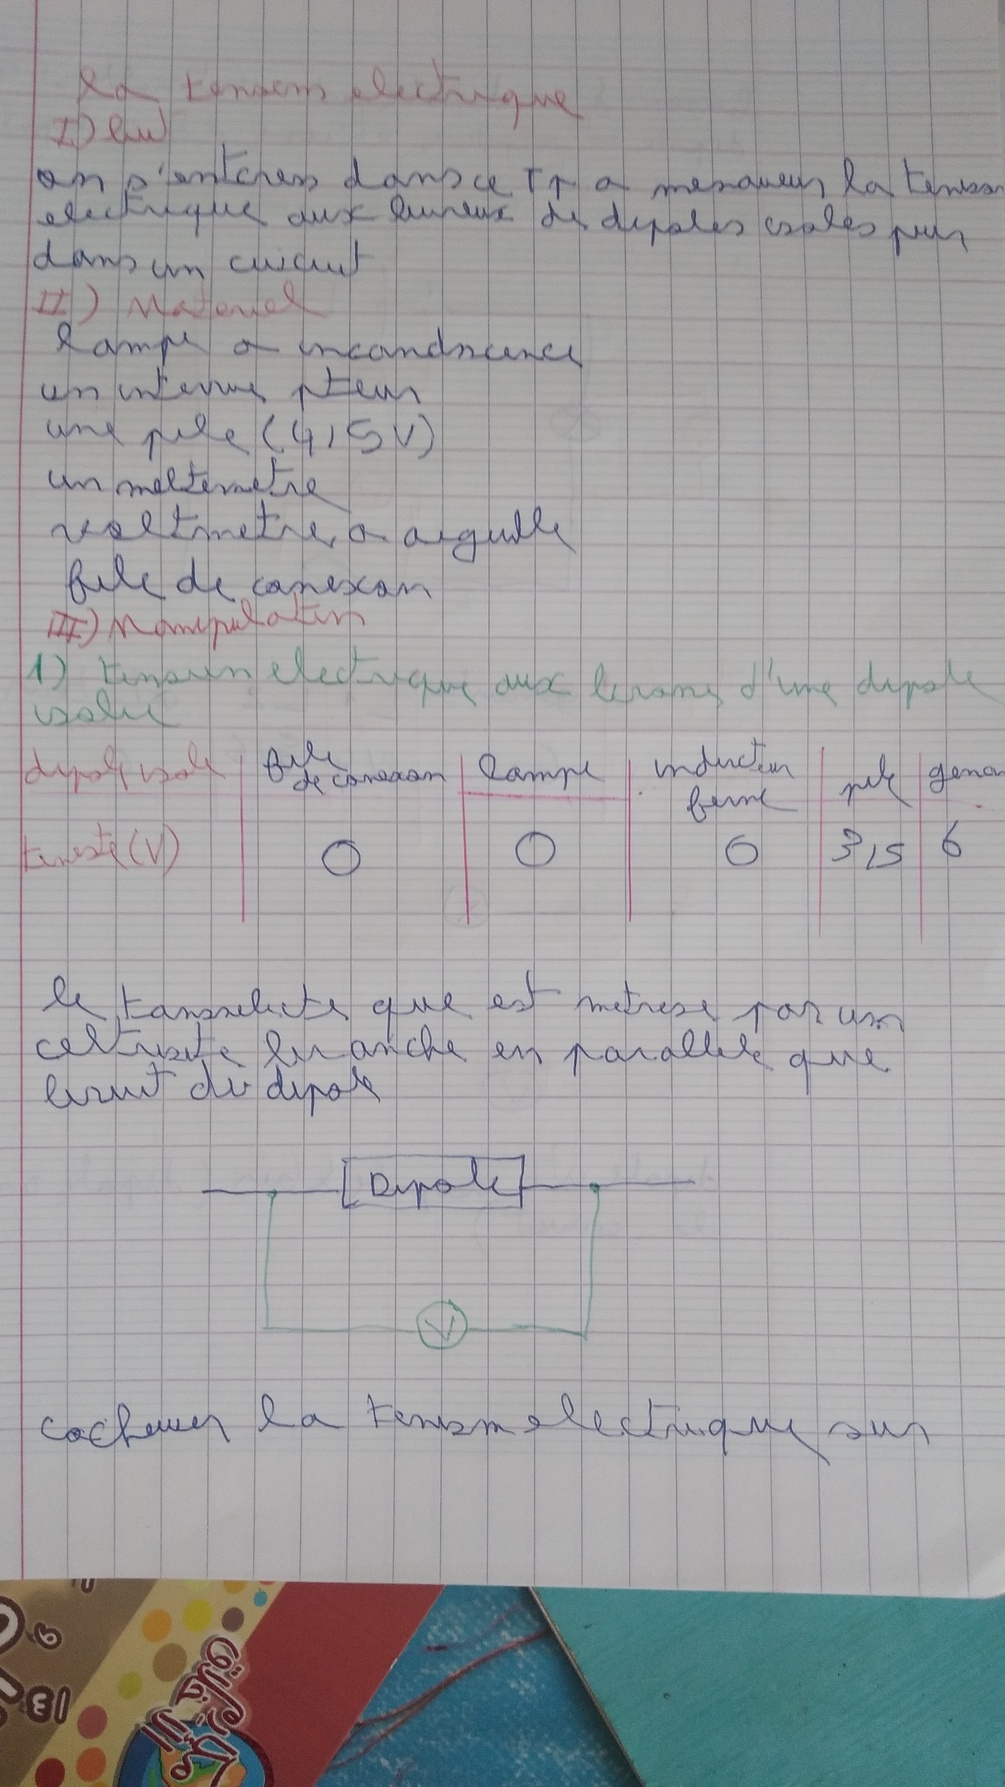 la tension electrique
I) but
on s'entcren dans ce TP a mesureur la tension
electrique aux burneux de dipoles isoles puis
dans un circuit
II) Materiel
lampe a incandncence
un interruppteur
une pile (4,5V)
un meltemetre
voltmetre a aiguille
file de conexion
III) Manipulation
1) tension electrique aux bornes d'une dipole
isolie
dipole isole file de conexion lampe inducteur ferme pile gene
(V) 0 0 0 3,5 6
le que est par un
branche en parallele que
du dipole
Dipole
V
la tension electrique sur
13
9